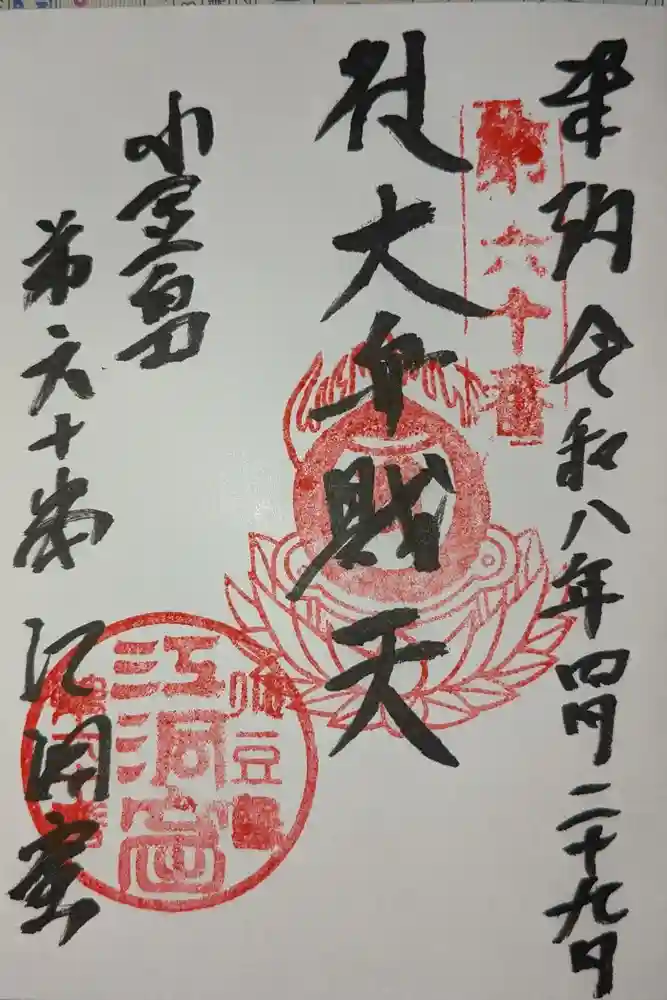 奉納 令和八年四月二十九日
第六十番
大弁財天
小豆島
第六十番 江洞窟
小豆
江洞窟